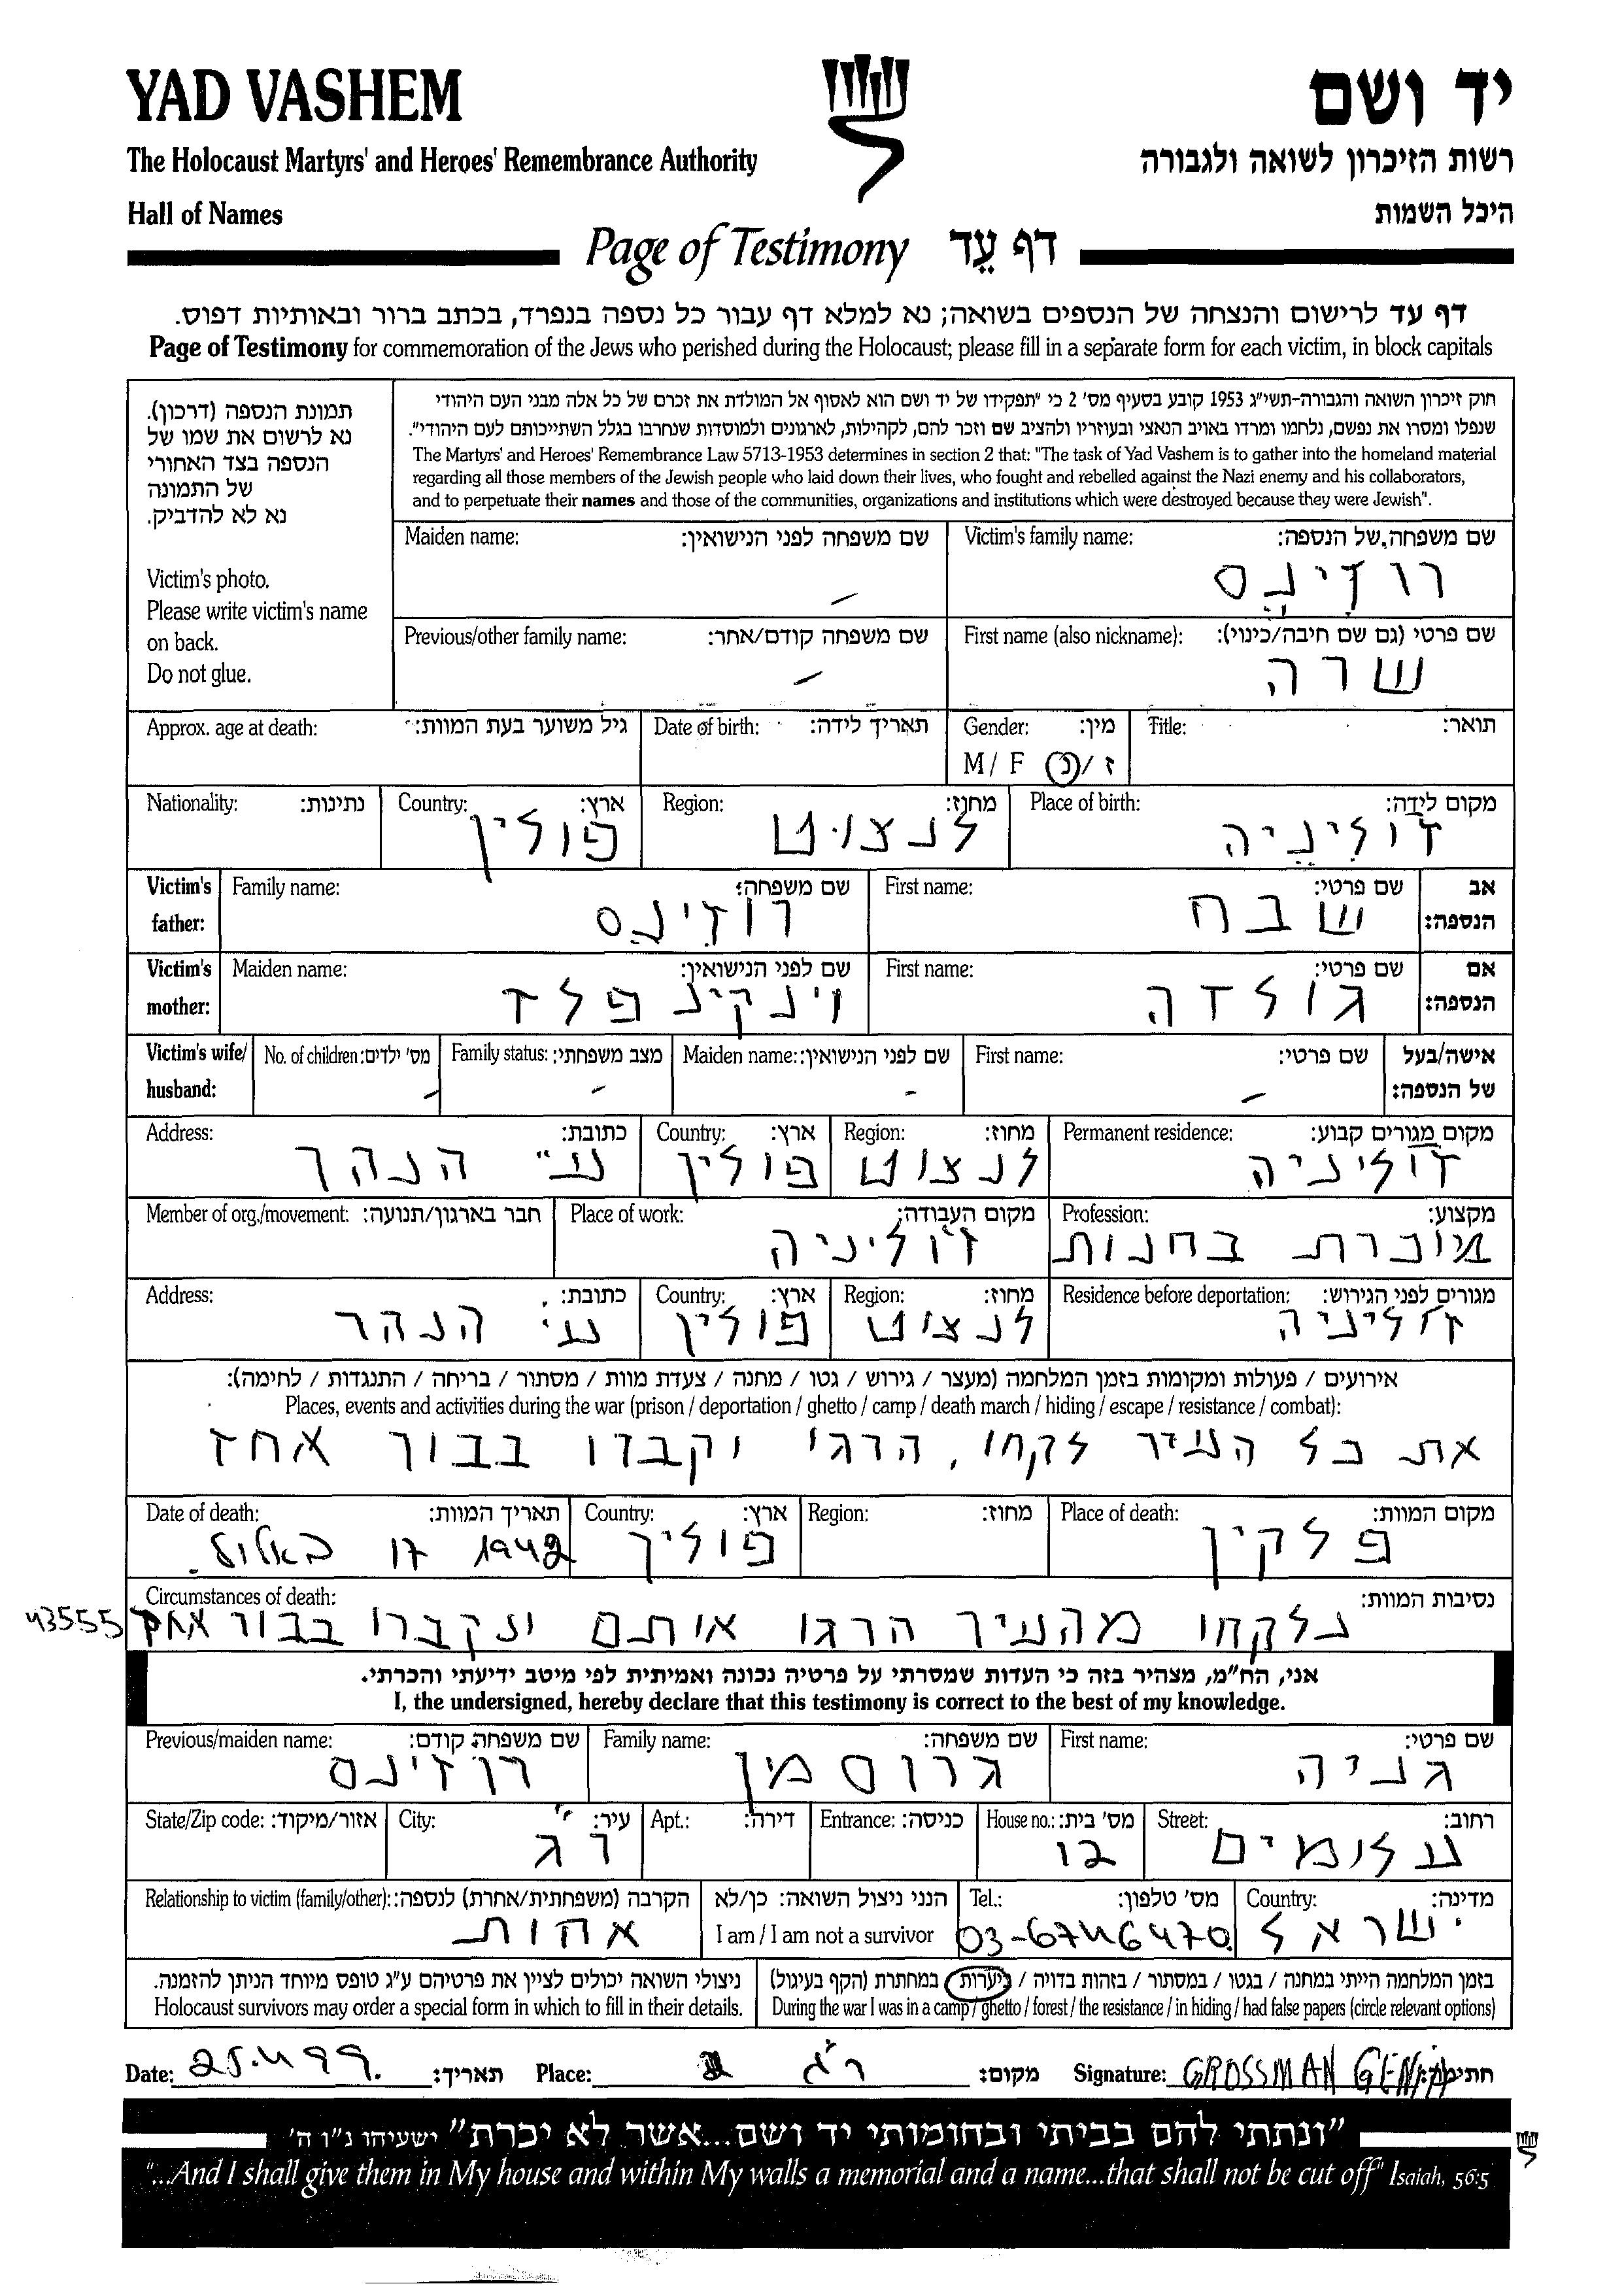 YAD VASHEM
יד ושם
The Holocaust Martyrs' and Heroes' Remembrance Authority
רשות הזיכרון לשואה ולגבורה
Hall of Names
היכל השמות
Page of Testimony דף עֵד
דף עד לרישום והנצחה של הנספים בשואה; נא למלא דף עבור כל נספה בנפרד, בכתב ברור ובאותיות דפוס.
Page of Testimony for commemoration of the Jews who perished during the Holocaust; please fill in a separate form for each victim, in block capitals
תמונת הנספה (דרכון).
נא לרשום את שמו של
הנספה בצד האחורי
של התמונה
נא לא להדביק.
Victim's photo.
Please write victim's name
on back.
Do not glue.
חוק זיכרון השואה והגבורה-תשי"ג 1953 קובע בסעיף מס' 2 כי "תפקידו של יד ושם הוא לאסוף אל המולדת את זכרם של כל אלה מבני העם היהודי
שנפלו ומסרו את נפשם, נלחמו ומרדו באויב הנאצי ובעוזריו ולהציב שם וזכר להם, לקהילות, לארגונים ולמוסדות שנחרבו בגלל השתייכותם לעם היהודי".
The Martyrs' and Heroes' Remembrance Law 5713-1953 determines in section 2 that: "The task of Yad Vashem is to gather into the homeland material
regarding all those members of the Jewish people who laid down their lives, who fought and rebelled against the Nazi enemy and his collaborators,
and to perpetuate their names and those of the communities, organizations and institutions which were destroyed because they were Jewish".
Maiden name: שם משפחה לפני הנישואין: Victim's family name: שם משפחה של הנספה:
רוזינס
Previous/other family name: שם משפחה קודם/אחר: First name (also nickname): שם פרטי (גם שם חיבה/כינוי):
שרה
Approx. age at death: גיל משוער בעת המוות: Date of birth: תאריך לידה: Gender: מין: Title: תואר:
M / F ז / נ
Nationality: נתינות: Country: ארץ: Region: מחוז: Place of birth: מקום לידה:
פולין לנצוט ז'וליניה
Victim's father: Family name: שם משפחה: First name: שם פרטי: אב הנספה:
רוזינס שבח
Victim's mother: Maiden name: שם לפני הנישואין: First name: שם פרטי: אם הנספה:
וינקינפלד גולדה
Victim's wife/ husband: No. of children: מס' ילדים: Family status: מצב משפחתי: Maiden name: שם לפני הנישואין: First name: שם פרטי: אישה/בעל של הנספה:
Address: כתובת: Country: ארץ: Region: מחוז: Permanent residence: מקום מגורים קבוע:
הנהר פולין לנצוט ז'וליניה
Member of org./movement: חבר בארגון/תנועה: Place of work: מקום העבודה: Profession: מקצוע:
ז'וליניה מוכרת בחנות
Address: כתובת: Country: ארץ: Region: מחוז: Residence before deportation: מגורים לפני הגירוש:
הנהר פולין לנצוט ז'וליניה
אירועים / פעולות ומקומות בזמן המלחמה (מעצר / גירוש / גטו / מחנה / צעדת מוות / מסתור / בריחה / התנגדות / לחימה):
Places, events and activities during the war (prison / deportation / ghetto / camp / death march / hiding / escape / resistance / combat):
את כל העיר לקחו, הרגו וקברו בבור אחד
Date of death: תאריך המוות: Country: ארץ: Region: מחוז: Place of death: מקום המוות:
1942 17 באלול. פולין פלקין
Circumstances of death: נסיבות המוות:
43555 נלקחו מהעיר הרגו אותם ונקברו בבור אחד
אני, הח"מ, מצהיר בזה כי העדות שמסרתי על פרטיה נכונה ואמיתית לפי מיטב ידיעתי והכרתי.
I, the undersigned, hereby declare that this testimony is correct to the best of my knowledge.
Previous/maiden name: שם משפחה קודם: Family name: שם משפחה: First name: שם פרטי:
רוזינס גרוסמן גניה
State/Zip code: אזור/מיקוד: City: עיר: Apt.: דירה: Entrance: כניסה: House no.: מס' בית: Street: רחוב:
ר"ג 12 עלומים
Relationship to victim (family/other): הקרבה (משפחתית/אחרת) לנספה: הנני ניצול השואה: כן/לא Tel.: מס' טלפון: Country: מדינה:
אחות I am / I am not a survivor 03-6746470 ישראל
ניצולי השואה יכולים לציין את פרטיהם ע"ג טופס מיוחד הניתן להזמנה.
Holocaust survivors may order a special form in which to fill in their details.
בזמן המלחמה הייתי במחנה / בגטו / במסתור / בזהות בדויה / ביערות במחתרת (הקף בעיגול)
During the war I was in a camp / ghetto / forest / the resistance / in hiding / had false papers (circle relevant options)
Date: 25.4.99. תאריך: Place: ר"ג מקום: Signature: GROSSMAN GENIA חתימה:
"ונתתי להם בביתי ובחומותי יד ושם...אשר לא יכרת" ישעיהו נ"ו ה'
"...And I shall give them in My house and within My walls a memorial and a name...that shall not be cut off" Isaiah, 56:5